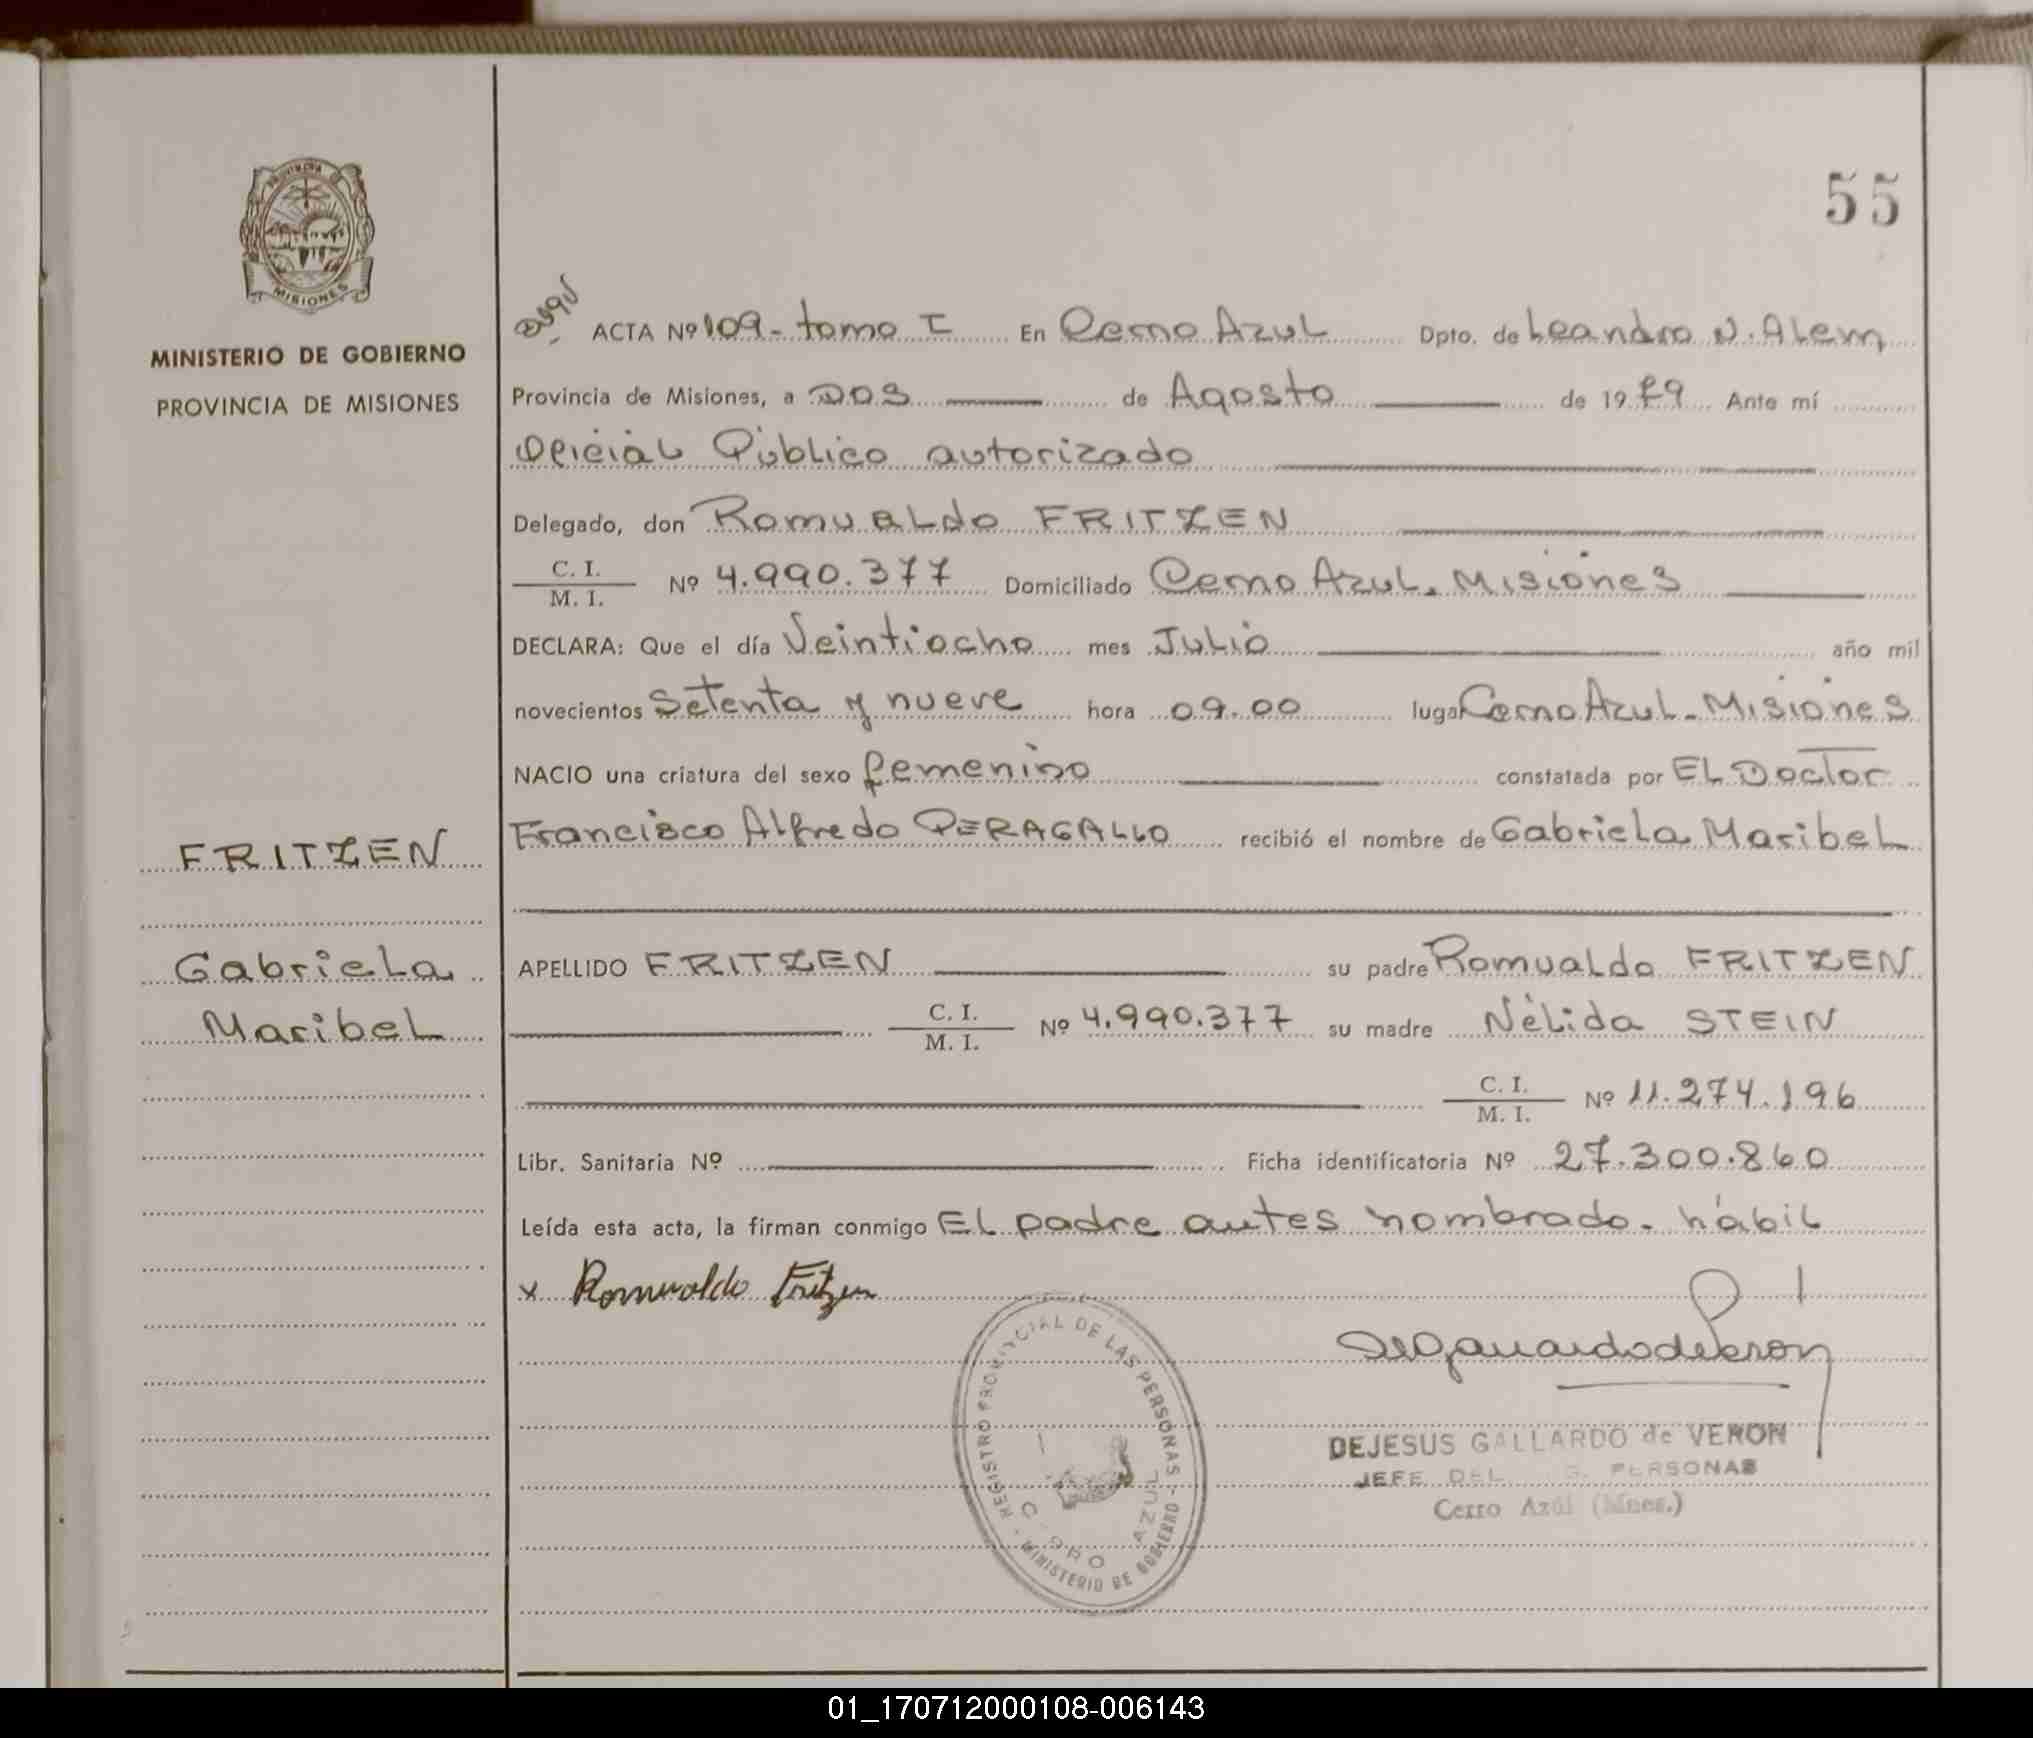 55
PROVINCIA
MISIONES
MINISTERIO DE GOBIERNO
PROVINCIA DE MISIONES
ACTA Nº 109 - tomo I En Cerro Azul Dpto. de Leandro N. Alem
Provincia de Misiones, a DOS de Agosto de 1979 Ante mí
Oficial Público autorizado
Delegado, don Romualdo FRITZEN
C. I.
M. I. Nº 4.990.377 Domiciliado Cerro Azul. Misiones
DECLARA: Que el día Veintiocho mes Julio año mil
novecientos Setenta y nueve hora 09.00 lugar Cerro Azul - Misiones
NACIO una criatura del sexo femenino constatada por EL Doctor
Francisco Alfredo PERAGALLO recibió el nombre de Gabriela Maribel
FRITZEN
Gabriela
Maribel
APELLIDO FRITZEN su padre Romualdo FRITZEN
C. I.
M. I. Nº 4.990.377 su madre Nélida STEIN
C. I.
M. I. Nº 11.274.196
Libr. Sanitaria Nº Ficha identificatoria Nº 27.300.860
Leída esta acta, la firman conmigo El padre antes nombrado. hábil
x Romualdo Fritzen
REGISTRO PROVINCIAL DE LAS PERSONAS - MINISTERIO DE GOBIERNO -
AZUL
DEJESUS GALLARDO de VERON
JEFE DEL PERSONAS
Cerro Azul (Mnes.)
01_170712000108-006143